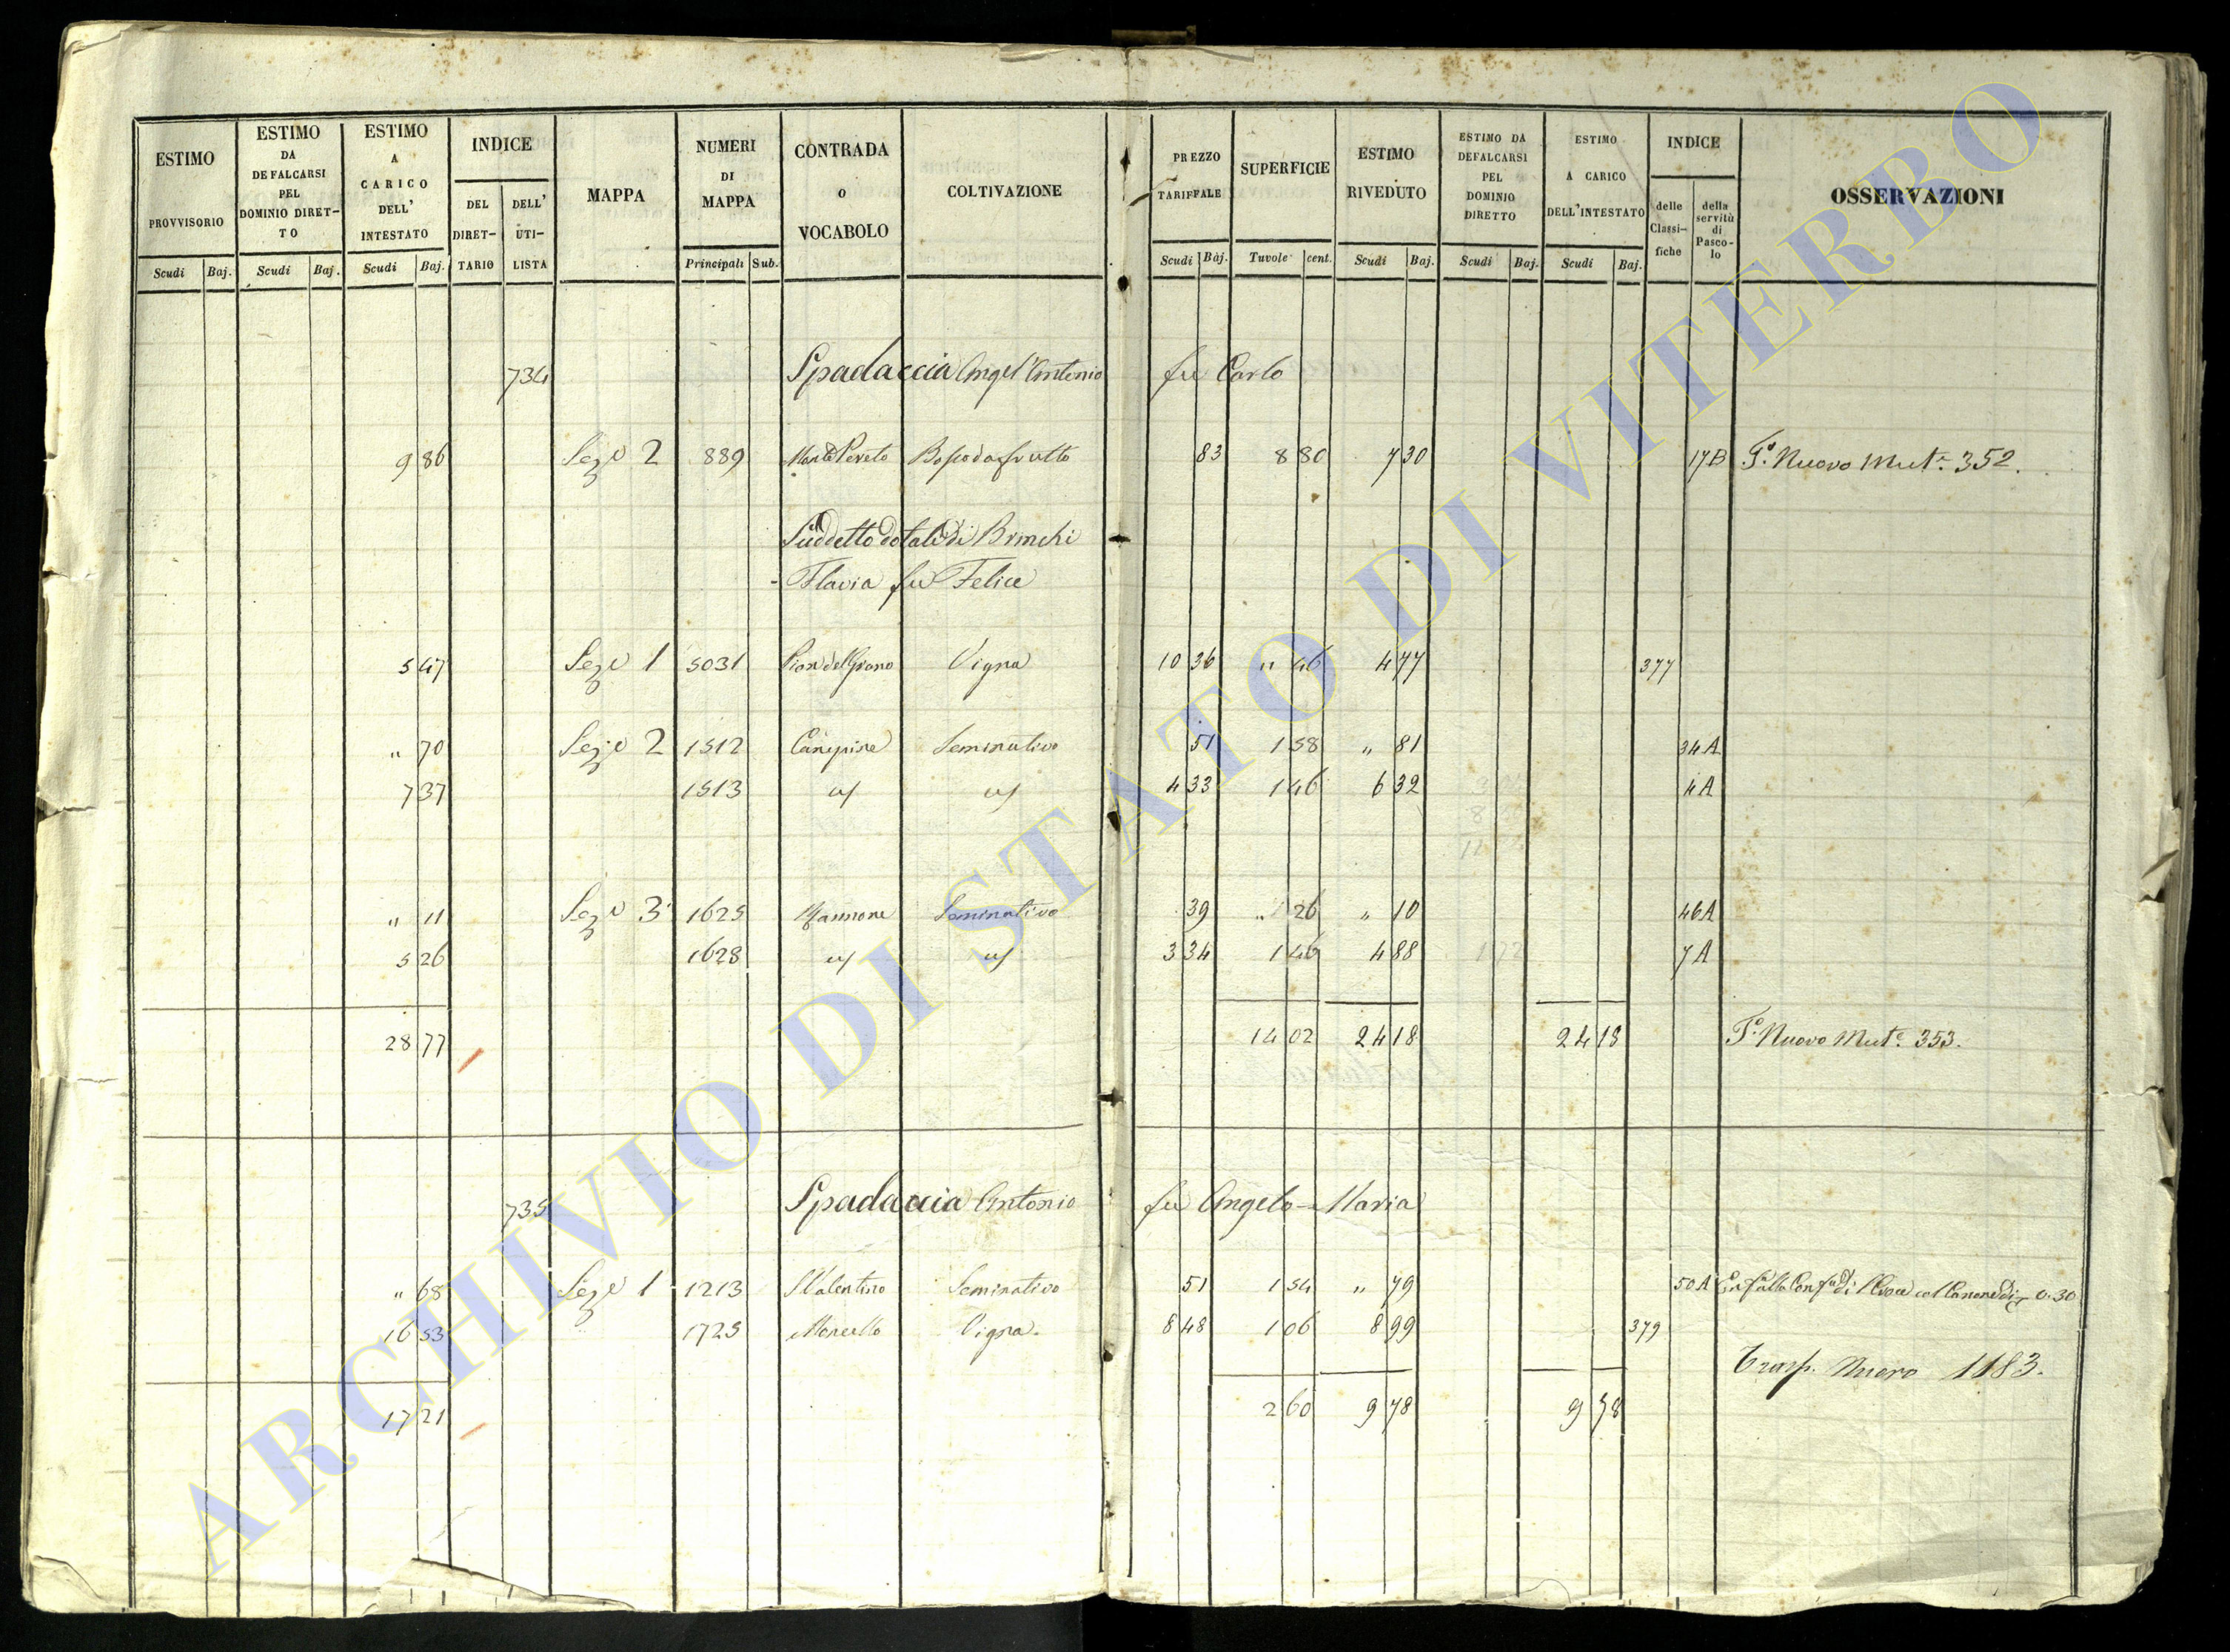 ESTIMO PROVVISORIO Scudi Baj.
ESTIMO DA DEFALCARSI PEL DOMINIO DIRET-TO Scudi Baj.
ESTIMO A CARICO DELL' INTESTATO Scudi Baj.
INDICE DEL DIRET-TARIO DELL' UTI-LISTA
MAPPA
NUMERI DI MAPPA Principali Sub.
CONTRADA o VOCABOLO
COLTIVAZIONE
PREZZO TARIFFALE Scudi Baj.
SUPERFICIE Tavole cent.
ESTIMO RIVEDUTO Scudi Baj.
ESTIMO DA DEFALCARSI PEL DOMINIO DIRETTO Scudi Baj.
ESTIMO A CARICO DELL'INTESTATO Scudi Baj.
INDICE delle Classi-fiche della servitù di Pasco-lo
OSSERVAZIONI
734 Spadaccia Angel'Antonio fu Carlo
9 86 Sez.e 2 889 Monte Pereto Bosco da frutto 83 8 80 7 30 17B T.o Nuovo Mut.e 352.
Suddetto dotali di
Flavia fu Felice
5 47 Sez.e 1 5031 Pian del Grano Vigna 10 36 " 46 4 77 377
" 70 Sez.e 2 1512 Canepine Seminativo 51 1 58 " 81 34A
7 37 1513 4 33 1 46 6 32 4A
" 11 Sez.e 3 1625 Seminativo 39 " 26 " 10 46A
5 26 1628 3 34 1 46 4 88 7A
28 77 14 02 24 18 24 18 T.o Nuovo Mut.e 353.
735 Spadaccia Antonio fu Angelo-Maria
" 68 Sez.e 1 1213 S Valentino Seminativo 51 1 54 " 79 50A
16 53 1725 Marcello Vigna. 8 48 1 06 8 99 379
Trasp. Nuovo 1183.
17 21 2 60 9 78 9 78
ARCHIVIO DI STATO DI VITERBO